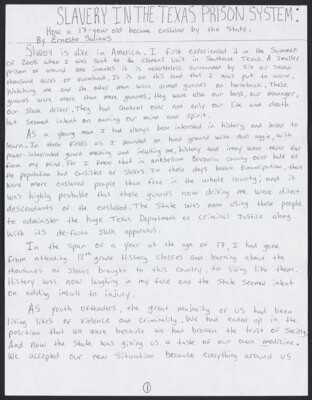 SLAVERY IN THE TEXAS PRISON SYSTEM:
How a 17-year old became enslaved by the State.
By Ernesto Salinas
Slavery is alive in America. I first experienced it in the Summer
of 2005 when I was sent to the Clemens Unit in Southeast Texas. A smaller
prison of around one
thousand acres of farmland. It is on this land that I was put to work.
Watching me and the other men were armed guards on horseback. These
guards were more than mere guards, they were also our boss, our manager,
our slave driver. They had control over not only our life and death
but seemed intent on owning our mind and spirit.
As a young man I had always been interested in history and loved to
learn. In those fields as I pounded on hard ground with dull aggie, with
power-intoxicated guard and insulting me, history and irony were never far
from my mind. For I knew that in antebellum Brazoria county over half of
the population had consisted of slaves. In those days before Emancipation, there
were more enslaved people than free in the whole county; and it
was highly probable that these guards now driving me were direct
descendants of the enslaved. The State was now using these people
to administer the huge Texas Department of Criminal Justice along
with its de-facto slave apparatus.
In the span of a year at the age of 17, I had gone
from attending 12th grade History classes and learning about the
thousands of slaves brought to this country, to living like them.
History was now laughing in my face and the State seemed intent
on adding insult to injury.
As youth offenders, the great majority of us had been
living lifes of violence and criminality. We had ended up in the
position that we were because we had broken the trust of Society.
And now the State was giving us a taste of our own medicine.
We accepted our new situation because everything around us
1